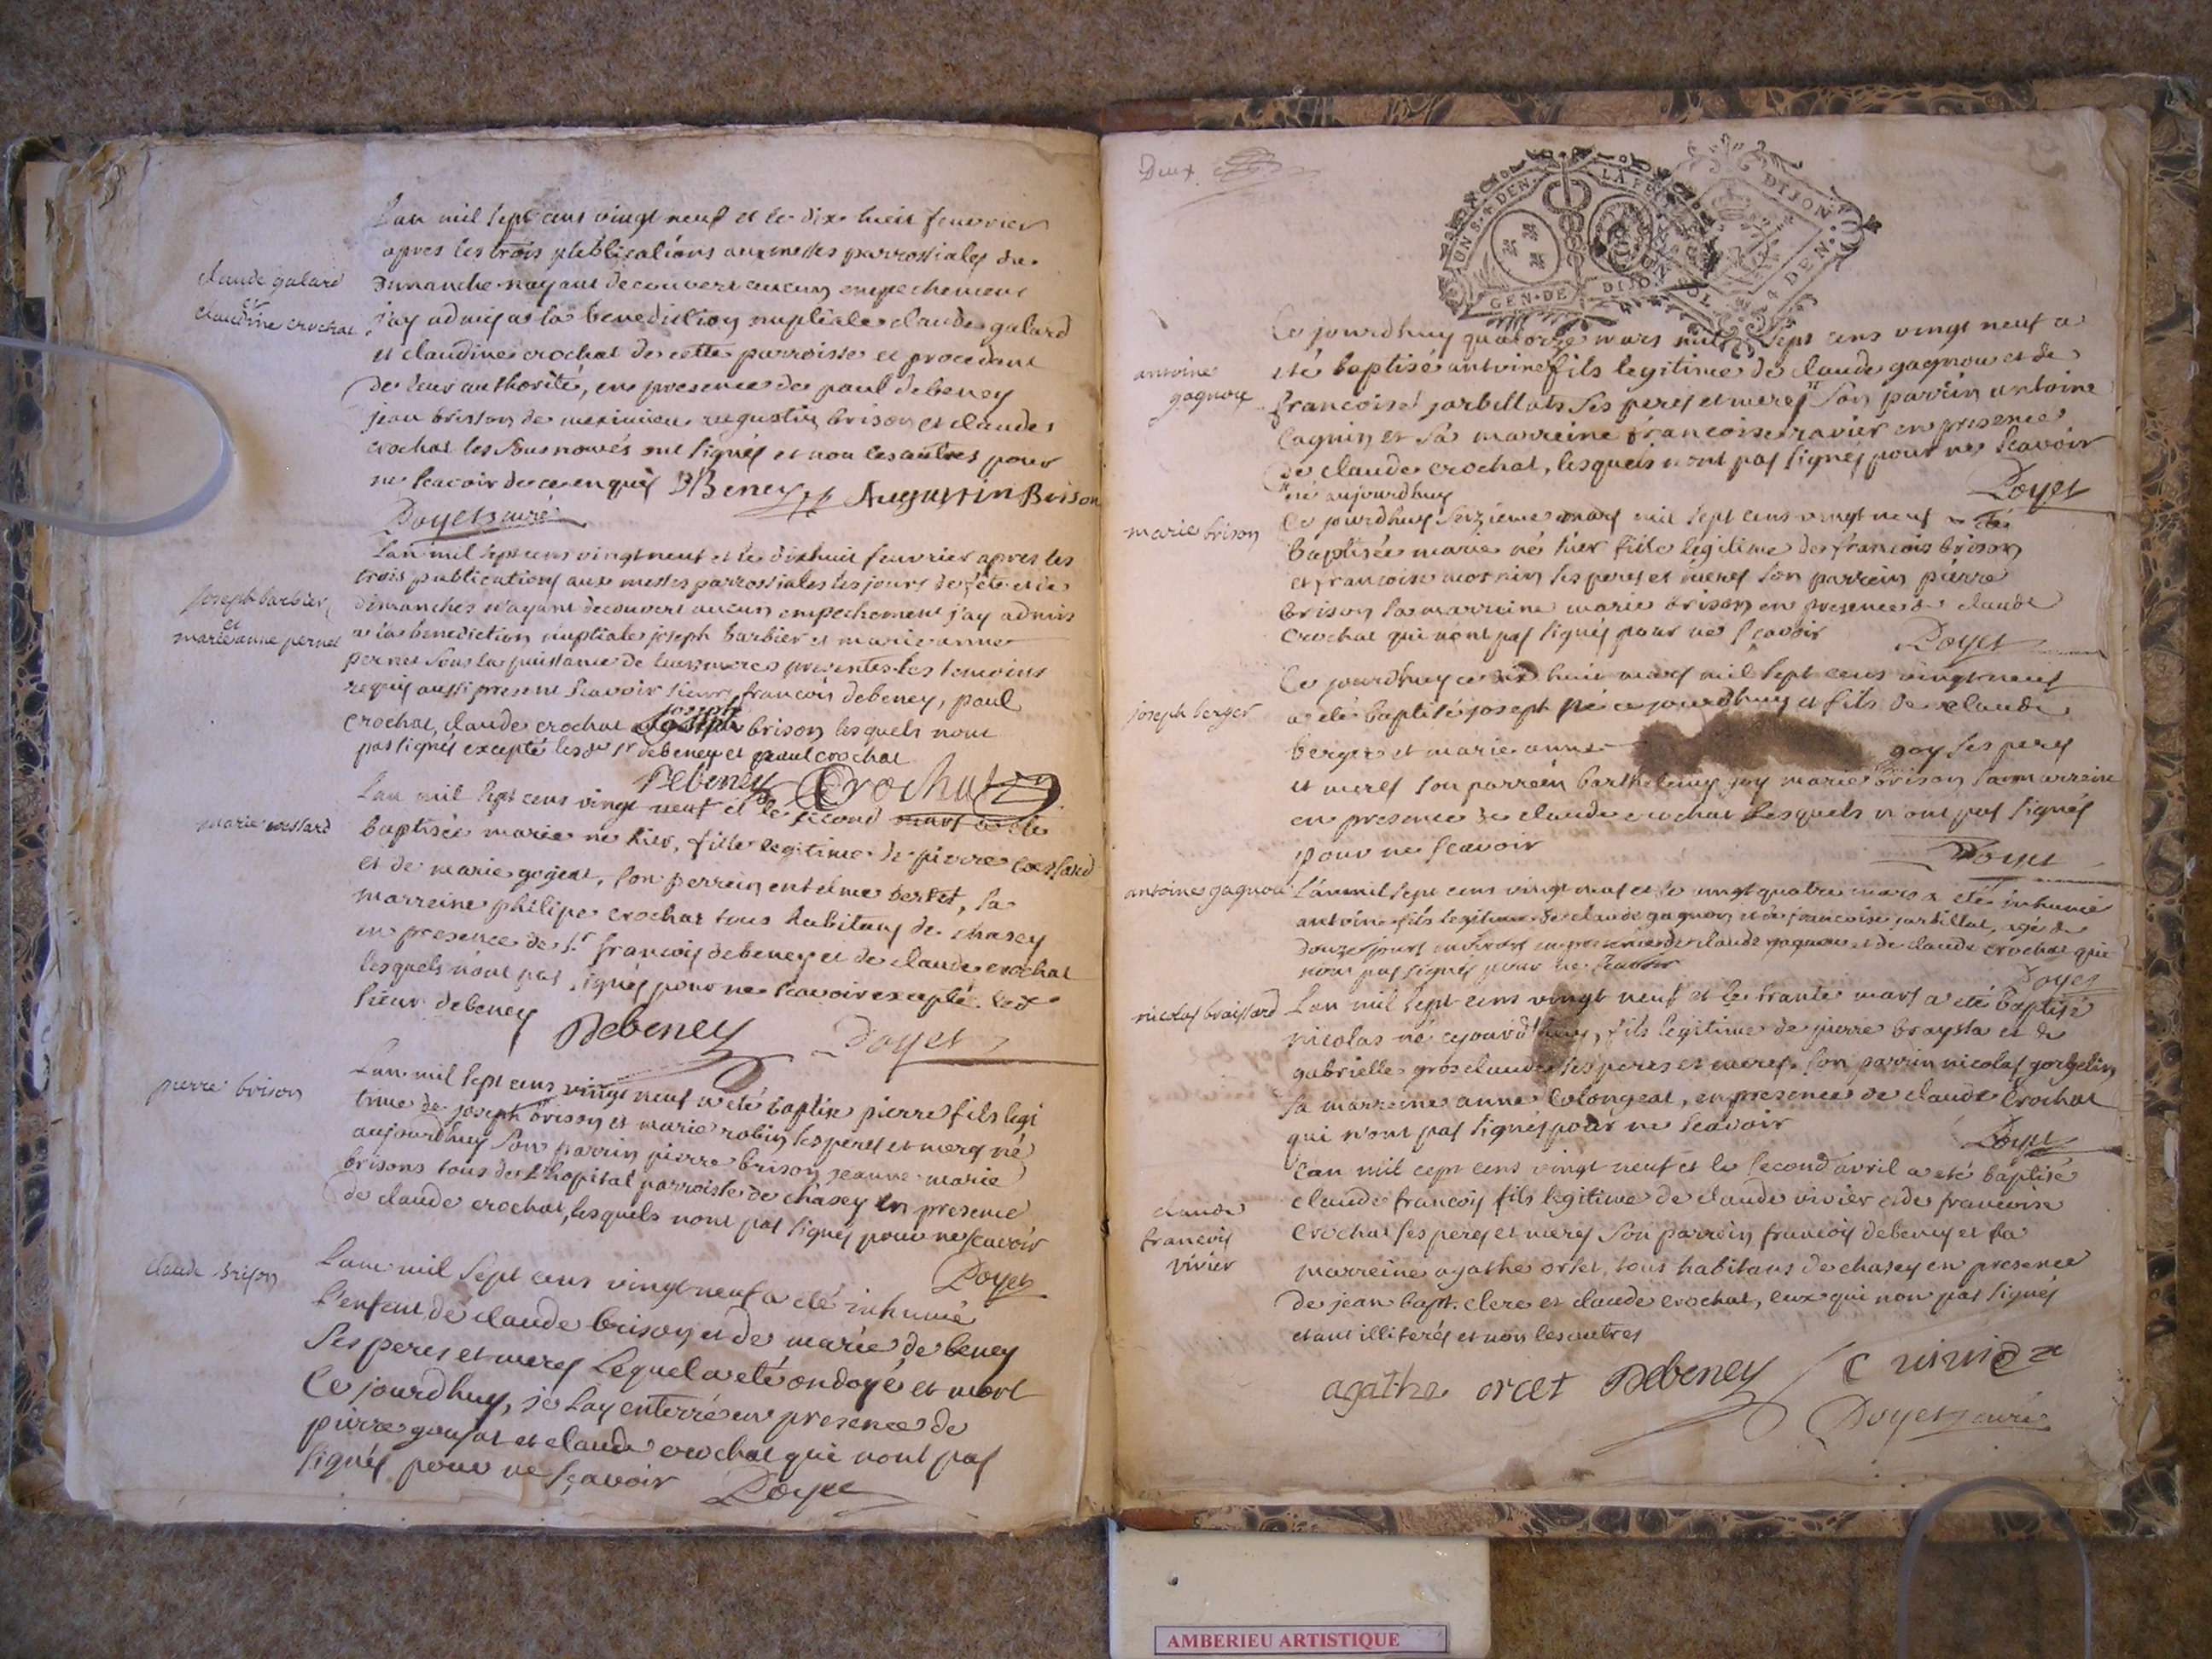 Lan mil sept cens vingt neuf et le dix huit feuvrier
apres les trois publications aux messes parrossiales du
claude galard
et
claudine crochat
Dimanche nayant decouvert aucun empechement
j'ay admis a la benediction nuptiale claude galard
et claudine crochat de cette parroisse et procedant
de leur authorité, en presence de paul debeney
jean brison de meximieu augustin brison et claude
crochat les sousnomés ont signés et non les autres pour
ne scavoir de ce enquis DBeney Augustin Brison
Doyet curé
Lan mil sept cens vingt neuf et le dixhuit feuvrier apres les
trois publications aux messes parrossiales les jours de fete et de
joseph barbier
et
marie anne pernet
dimanches n'ayant decouvert aucun empechement j'ay admis
a la benediction nuptiale joseph barbier et marie anne
pernet sous la puissance de leurs meres presentes les temoins
requis aussi present scavoir sieur francois debeney, paul
crochat, claude crochat joseph brison lesquels nont
pas signés excepté les dts sr debeney et paul crochat
Debeney Crochat
marie
Lan mil sept cens vingt neuf et le second mars a eté
baptisée marie né hier, fille legitime de pierre
et de marie gojeat, son perrein entelme, la
marreine philipe crochat tous habitans de chasey
en presence de sr francois debeney et de claude crochat
lesquels n'ont pas signés pour ne scavoir excepté led
sieur debeney Debeney Doyet
pierre brison
Lan mil sept cens vingt neuf a eté baptisé pierre fils legi
time de joseph brison et marie robin ses peres et meres né
aujourdhuy son parrin pierre brison jeanne marie
brisons tous de l'hopital parroisse de chasey en presence
de claude crochat, lesquels nont pas signés pour ne scavoir
Doyet
claude brison
Lan mil sept cens vingt neuf a eté inhumé
l'enfent de claude brison et de marie debeney
ses peres et meres lequel a eté ondoyé et mort
ce jourdhuy, je lay enterré en presence de
pierre goujat et claude crochat qui nont pas
signés pour ne sçavoir Doyet
Deux
GEN. DE DIJON
DIJON
DEN.
antoine
gagnou
Ce jourdhuy quatorze mars mil sept cens vingt neuf a
eté baptisé antoine fils legitime de claude gagnou et de
francoise jarbillat ses peres et meres son parrin antoine
Cagnin et sa marreine francoise ravier en presence
de claude crochat, lesquels nont pas signés pour ne scavoir
né aujourdhuy Doyet
marie brison
Ce jourdhuy seizieme mars mil sept cens vingt neuf a eté
baptisée marie né hier fille legitime de francois brison
et francoise mornin ses peres et meres son parrein pierre
brison sa marreine marie brison en presence de claude
crochat qui nont pas signés pour ne sçavoir Doyet
joseph berger
Ce jourdhuy ce dix huit mars mil sept cens vingt neuf
a eté baptisé joseph né ce jourdhuy et fils de claude
berger et marie anne goy ses peres
et meres son parrein barthelemy joy marie brison sa marreine
en presence de claude crochat lesquels n'ont pas signés
pour ne scavoir Doyet
antoine gagnou
Lan mil sept cens vingt neuf et le vingt quatre mars a eté inhumé
antoine fils legitime de claude gagnou et de francoise jarbillat, agé de
douze jours environ en presence de claude gagnou et de claude crochat qui
nont pas signés pour ne scavoir Doyet
nicolas braissard
Lan mil sept cens vingt neuf et le trante mars a eté baptisé
nicolas né cejourdhuy, fils legitime de pierre braysta et de
gabrielle grosclaude ses peres et meres. son parrin nicolas gorgelin
sa marreine anne Colongeat, en presence de claude Crochat
qui n'ont pas signés pour ne scavoir Doyet
claude
francois
vivier
L'an mil cept cens vingt neuf et le second avril a eté baptisé
claude francois fils legitime de claude vivier et de francoise
Crochat ses peres et meres son parrein francois debeney et sa
marreine agathe orset, tous habitans de chasey en presence
de jean bapt. clere et claude crochat, eux qui non pas signés
etant illiterés et non les autres
agathe orcet Debeney C vivier
Doyet curé
AMBERIEU ARTISTIQUE